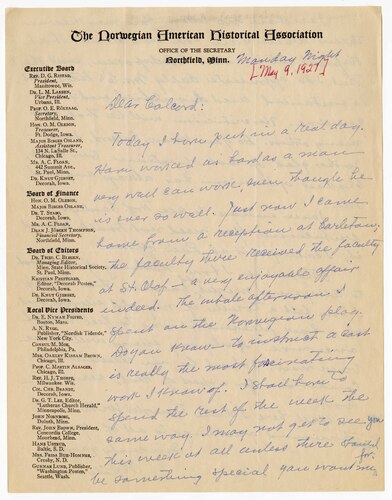 The Norwegian American Historical Association
OFFICE OF THE SECRETARY
Northfield, Minn.
Monday Night
[May 9, 1927]
Executive Board
President,
Manitowoc, Wis.
DR. L. M. LARSEN,
Vice President,
Urbana, Ill.
Secretary,
Northfield, Minn.
HON. O. M. OLESON,
Treasurer,
Ft. Dodge, Iowa.
MAJOR BIRGER OSLAND,
Assistant Treasurer,
134 N. LaSalle St.,
Chicago, Ill.
MR. A. C. FLOAN,
442 Summit Ave.,
St. Paul, Minn.
DR. KNUT GJERSET,
Decorah, Iowa.
Board of Finance
HON. O. M. OLESON,
MAJOR BIRGER OSLAND,
DR. T. STABO,
Decorah, Iowa.
MR. A. C. FLOAN,
DEAN J. JÖRGEN THOMPSON,
Financial Secretary,
Northfield, Minn.
Board of Editors
DR. THEO. C. BLEGEN,
Managing Editor,
Minn. State Historical Society,
St. Paul, Minn.
KRISTIAN PRESTGARD,
Editor, "Decorah Posten,"
Decorah, Iowa.
DR. KNUT GJERSET,
Decorah, Iowa.
Local Vice Presidents
Boston, Mass.
Publisher, "Nordisk Tidende,"
New York City.
Philadelphia, Pa.
Chicago, Ill.
Chicago, Ill.
Milwaukee, Wis.
Decorah, Ia.
DR. G. T. LEE, Editor
"Lutheran Church Herald,"
Minneapolis, Minn.
Duluth, Minn.
REV. JOHN BROWN, President,
Concordia College,
Moorhead, Minn.
Crosby, N. D.
GUNNAR LUND, Publisher,
"Washington Posten,"
Seattle, Wash.
Dear Calcord:
Today I have put in a real day.
Have worked as hard as a man
very well can work even though he
is ever so well. Just now I came
home from a reception at Carleton,
the faculty there received the faculty
at St. Olaf - a very enjoyable affair
indeed. The whole afternoon I
spent on the Norwegian play.
Do you know - to instruct a cast
is really the most fascinating
work I know of. I shall have to
spend the rest of the week the
same way. I may not get to see you
this week at all unless there should
be something special you want me
for.